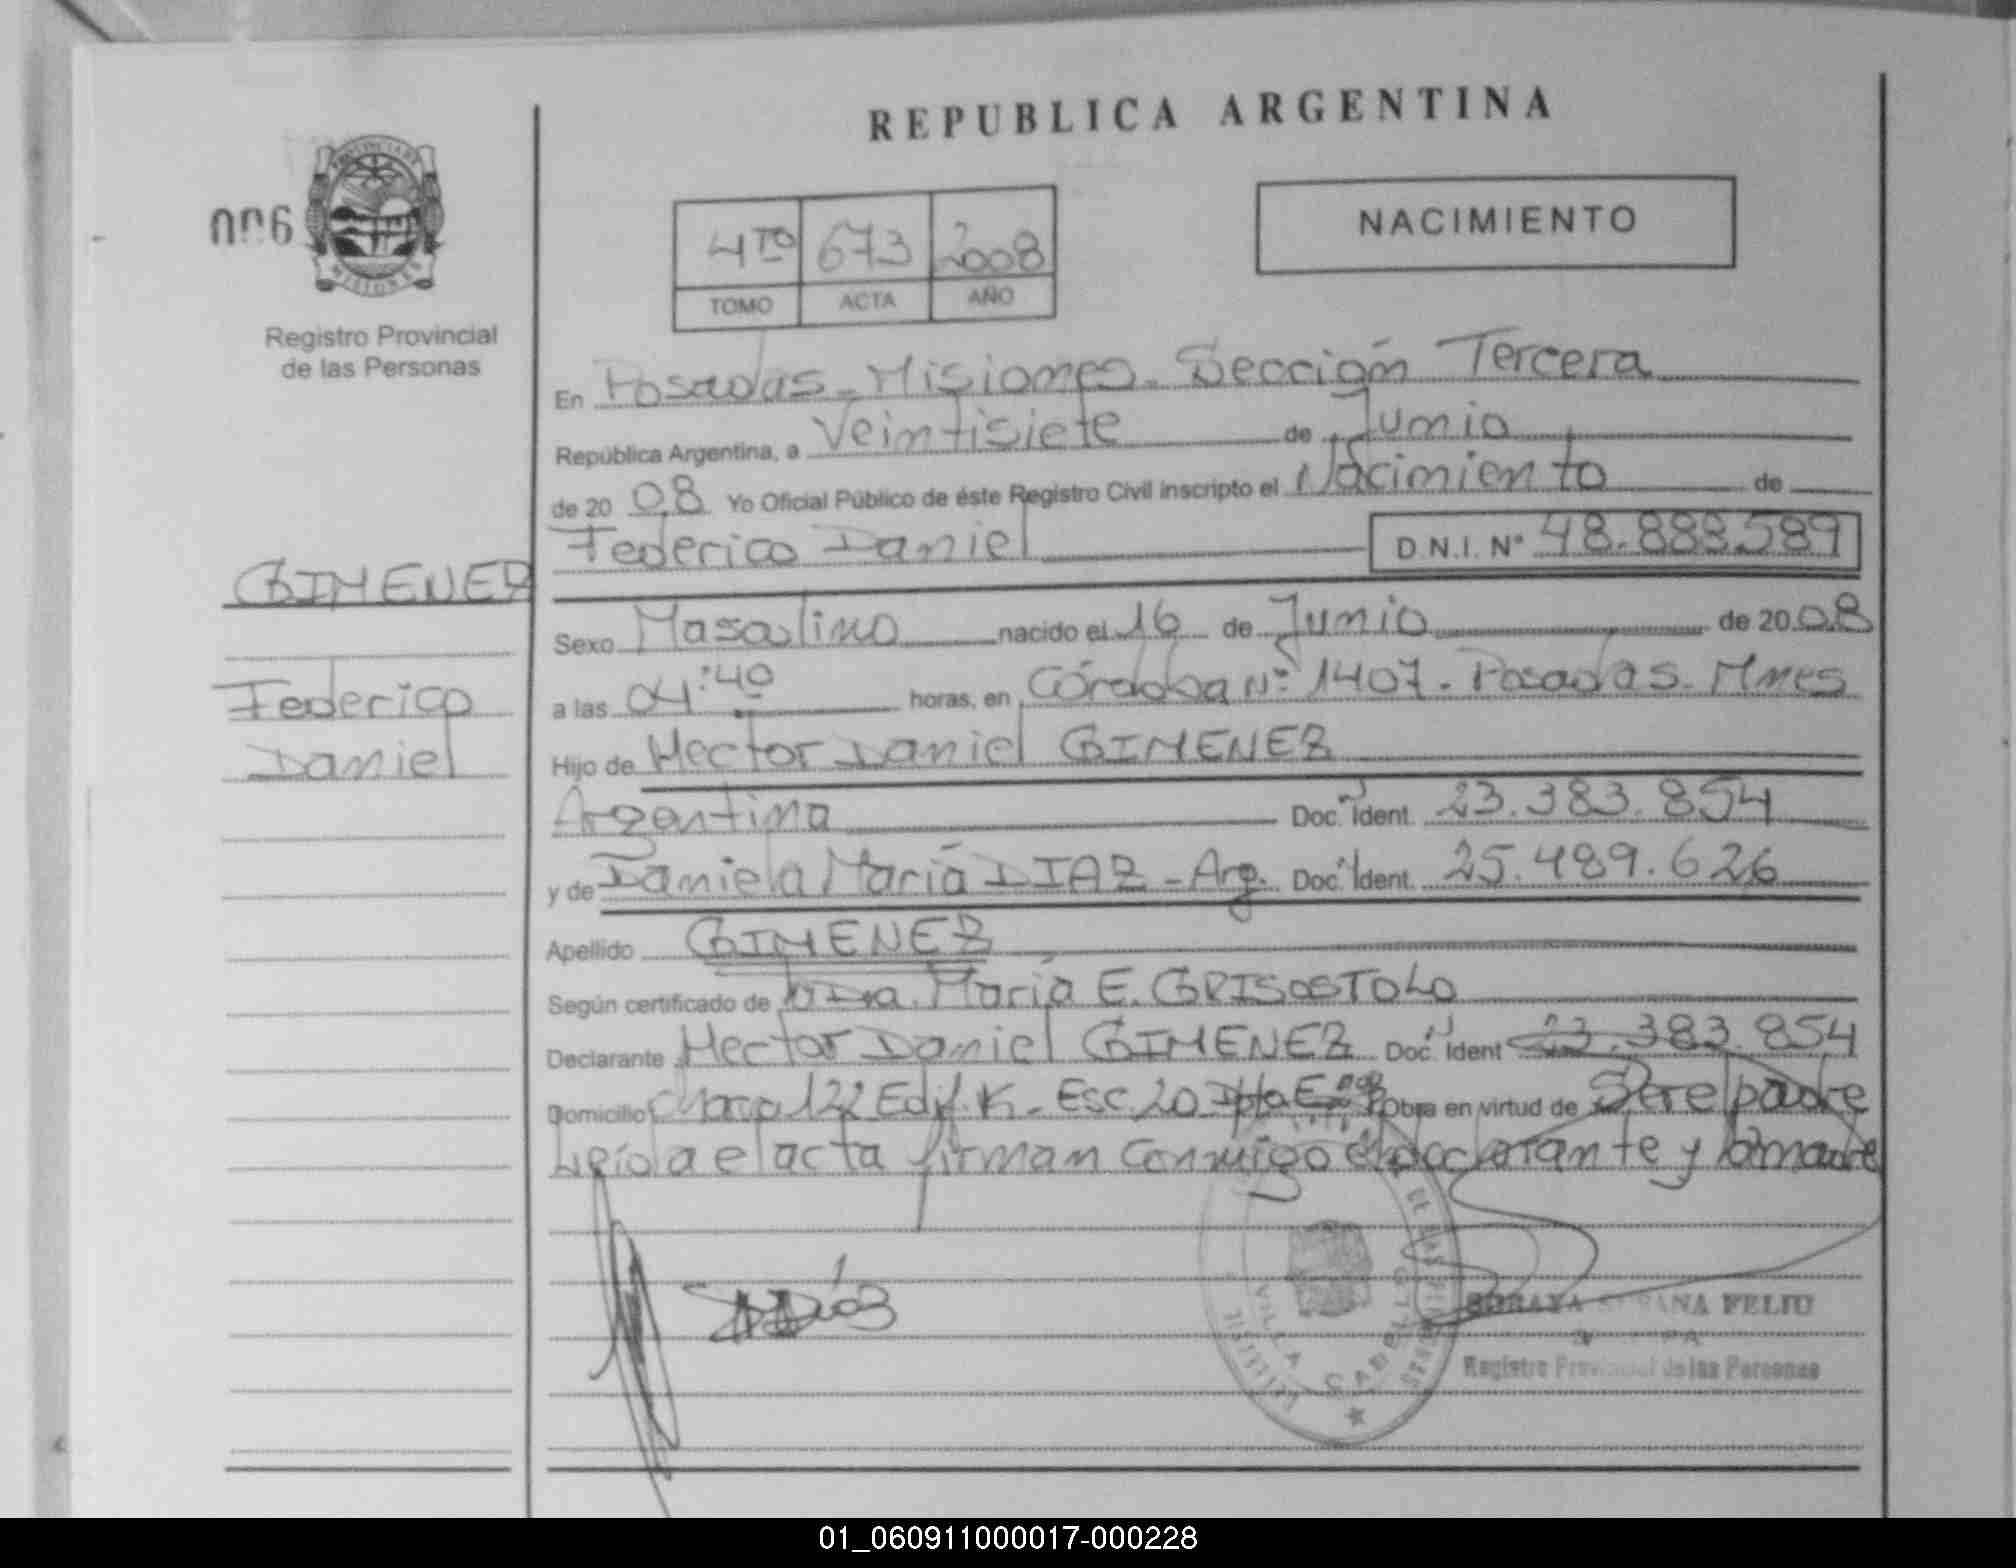 REPUBLICA ARGENTINA
PROVINCIA DE
MISIONES
006
Registro Provincial
de las Personas
4TO 673 2008
TOMO ACTA AÑO
NACIMIENTO
En Posadas - Misiones - Sección Tercera
República Argentina, a Veintisiete de Junio
de 20 08 Yo Oficial Público de éste Registro Civil inscripto el Nacimiento de
Federico Daniel D.N.I. Nº 48.888.589
GIMENEZ
Federico
Daniel
Sexo Masculino nacido el 16 de Junio de 20 08
a las 04:40 horas, en Córdoba Nº 1407 - Posadas - Mnes
Hijo de Hector Daniel GIMENEZ
Argentina Doc. Ident. 23.383.854
y de Daniela María DIAZ - Arg. Doc. Ident. 25.489.626
Apellido GIMENEZ
Según certificado de Dra. María E. GRISOSTOLO
Declarante Hector Daniel GIMENEZ Doc. Ident 23.383.854
Domicilio Chaca 122 Edif. K - Esc. 20 Dpto E Obra en virtud de Ser el padre
Leída el acta firman conmigo el declarante y la madre
Díaz
DE LAS PERSONAS
VILLA CABELLO
SORAYA SUSANA FELIU
Registro Provincial de las Personas
01_060911000017-000228